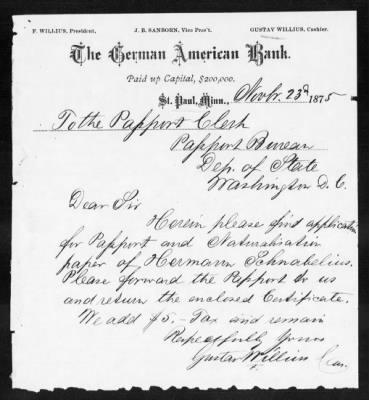 F. WILLIUS, President. J. B. SANBORN, Vice Pres't. GUSTAV WILLIUS, Cashier.
The German American Bank.
Paid up Capital, $200,000.
St. Paul, Minn., Novbr. 23d 1875
To the Passport Clerk
Passport Bureau
Dep. of State
Washington D. C.
Dear Sir
Herein please find application
for Passport and Naturalisation
paper of Hermann Schnabelius.
Please forward the Passport to us
and return the enclosed Certificate.
We add $5.- Tax and remain
Respectfully Yours
Gustav Willius Cas.